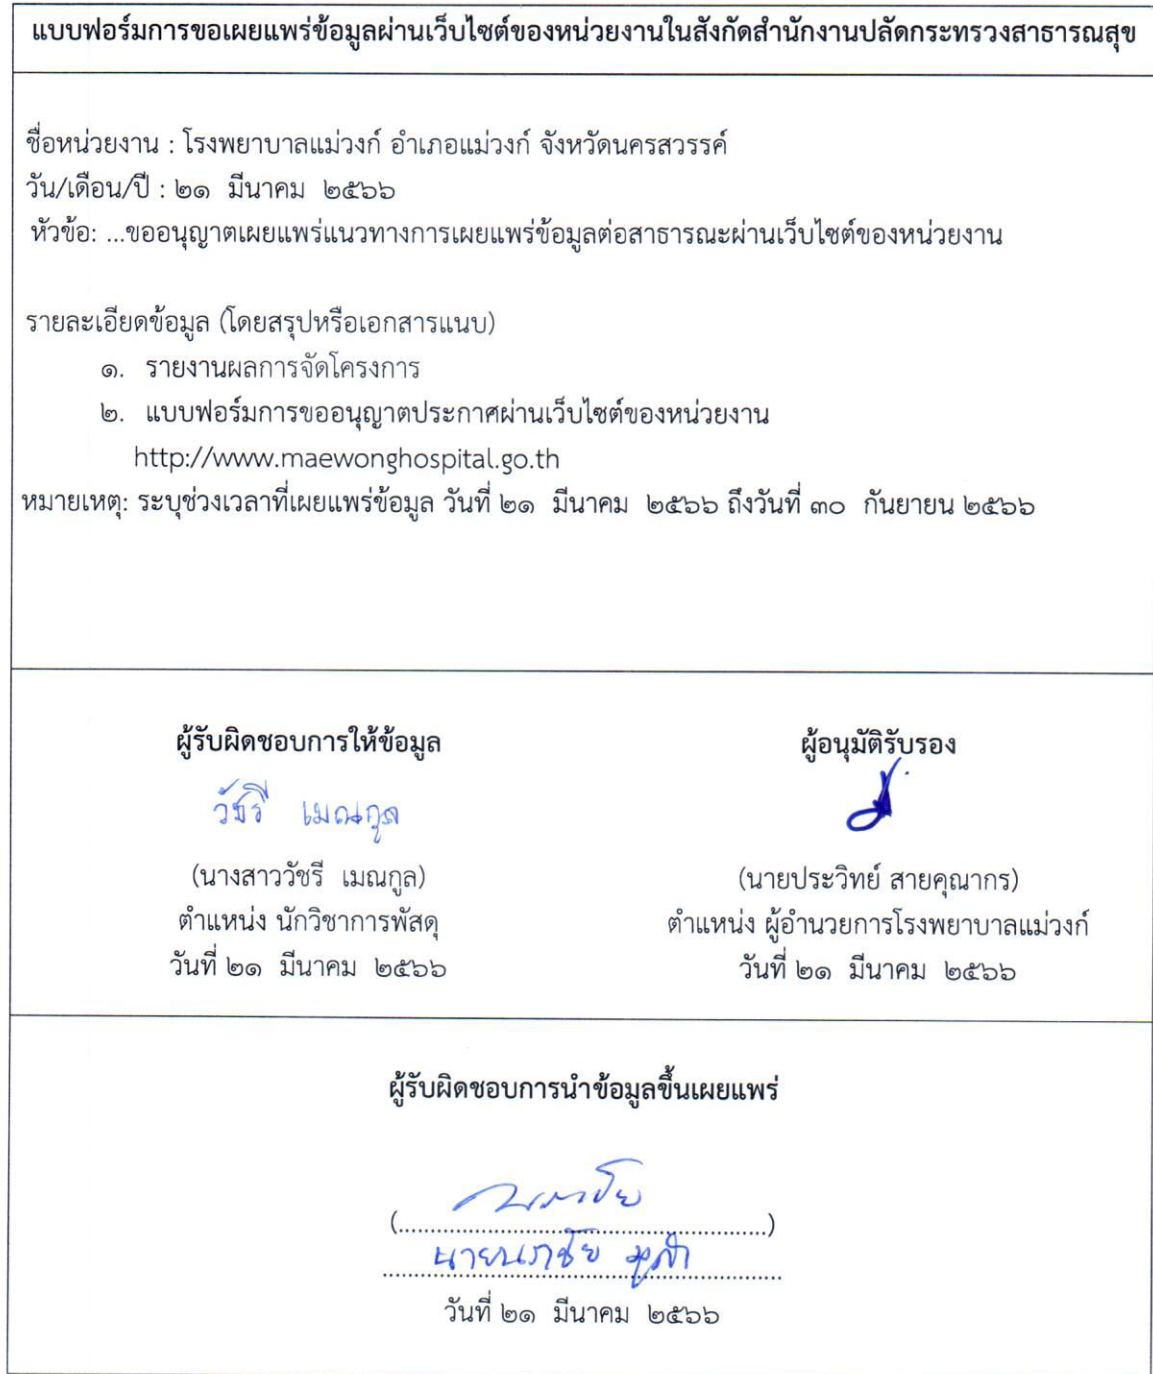 แบบฟอร์มการขอเผยแพร่ข้อมูลผ่านเว็บไซต์ของหน่วยงานในสังกัดสำนักงานปลัดกระทรวงสาธารณสุข
ชื่อหน่วยงาน : โรงพยาบาลแม่วงก์ อำเภอแม่วงก์ จังหวัดนครสวรรค์
วัน/เดือน/ปี : ๒๑ มีนาคม ๒๕๖๖
หัวข้อ: ...ขออนุญาตเผยแพร่แนวทางการเผยแพร่ข้อมูลต่อสาธารณะผ่านเว็บไซต์ของหน่วยงาน
รายละเอียดข้อมูล (โดยสรุปหรือเอกสารแนบ)
๑. รายงานผลการจัดโครงการ
๒. แบบฟอร์มการขออนุญาตประกาศผ่านเว็บไซต์ของหน่วยงาน
http://www.maewonghospital.go.th
หมายเหตุ: ระบุช่วงเวลาที่เผยแพร่ข้อมูล วันที่ ๒๑ มีนาคม ๒๕๖๖ ถึงวันที่ ๓๐ กันยายน ๒๕๖๖
ผู้รับผิดชอบการให้ข้อมูล
วัชรี เมณกูล
(นางสาววัชรี เมณกูล)
ตำแหน่ง นักวิชาการพัสดุ
วันที่ ๒๑ มีนาคม ๒๕๖๖
ผู้อนุมัติรับรอง
(นายประวิทย์ สายคุณากร)
ตำแหน่ง ผู้อำนวยการโรงพยาบาลแม่วงก์
วันที่ ๒๑ มีนาคม ๒๕๖๖
ผู้รับผิดชอบการนำข้อมูลขึ้นเผยแพร่
(..................................................)
วันที่ ๒๑ มีนาคม ๒๕๖๖